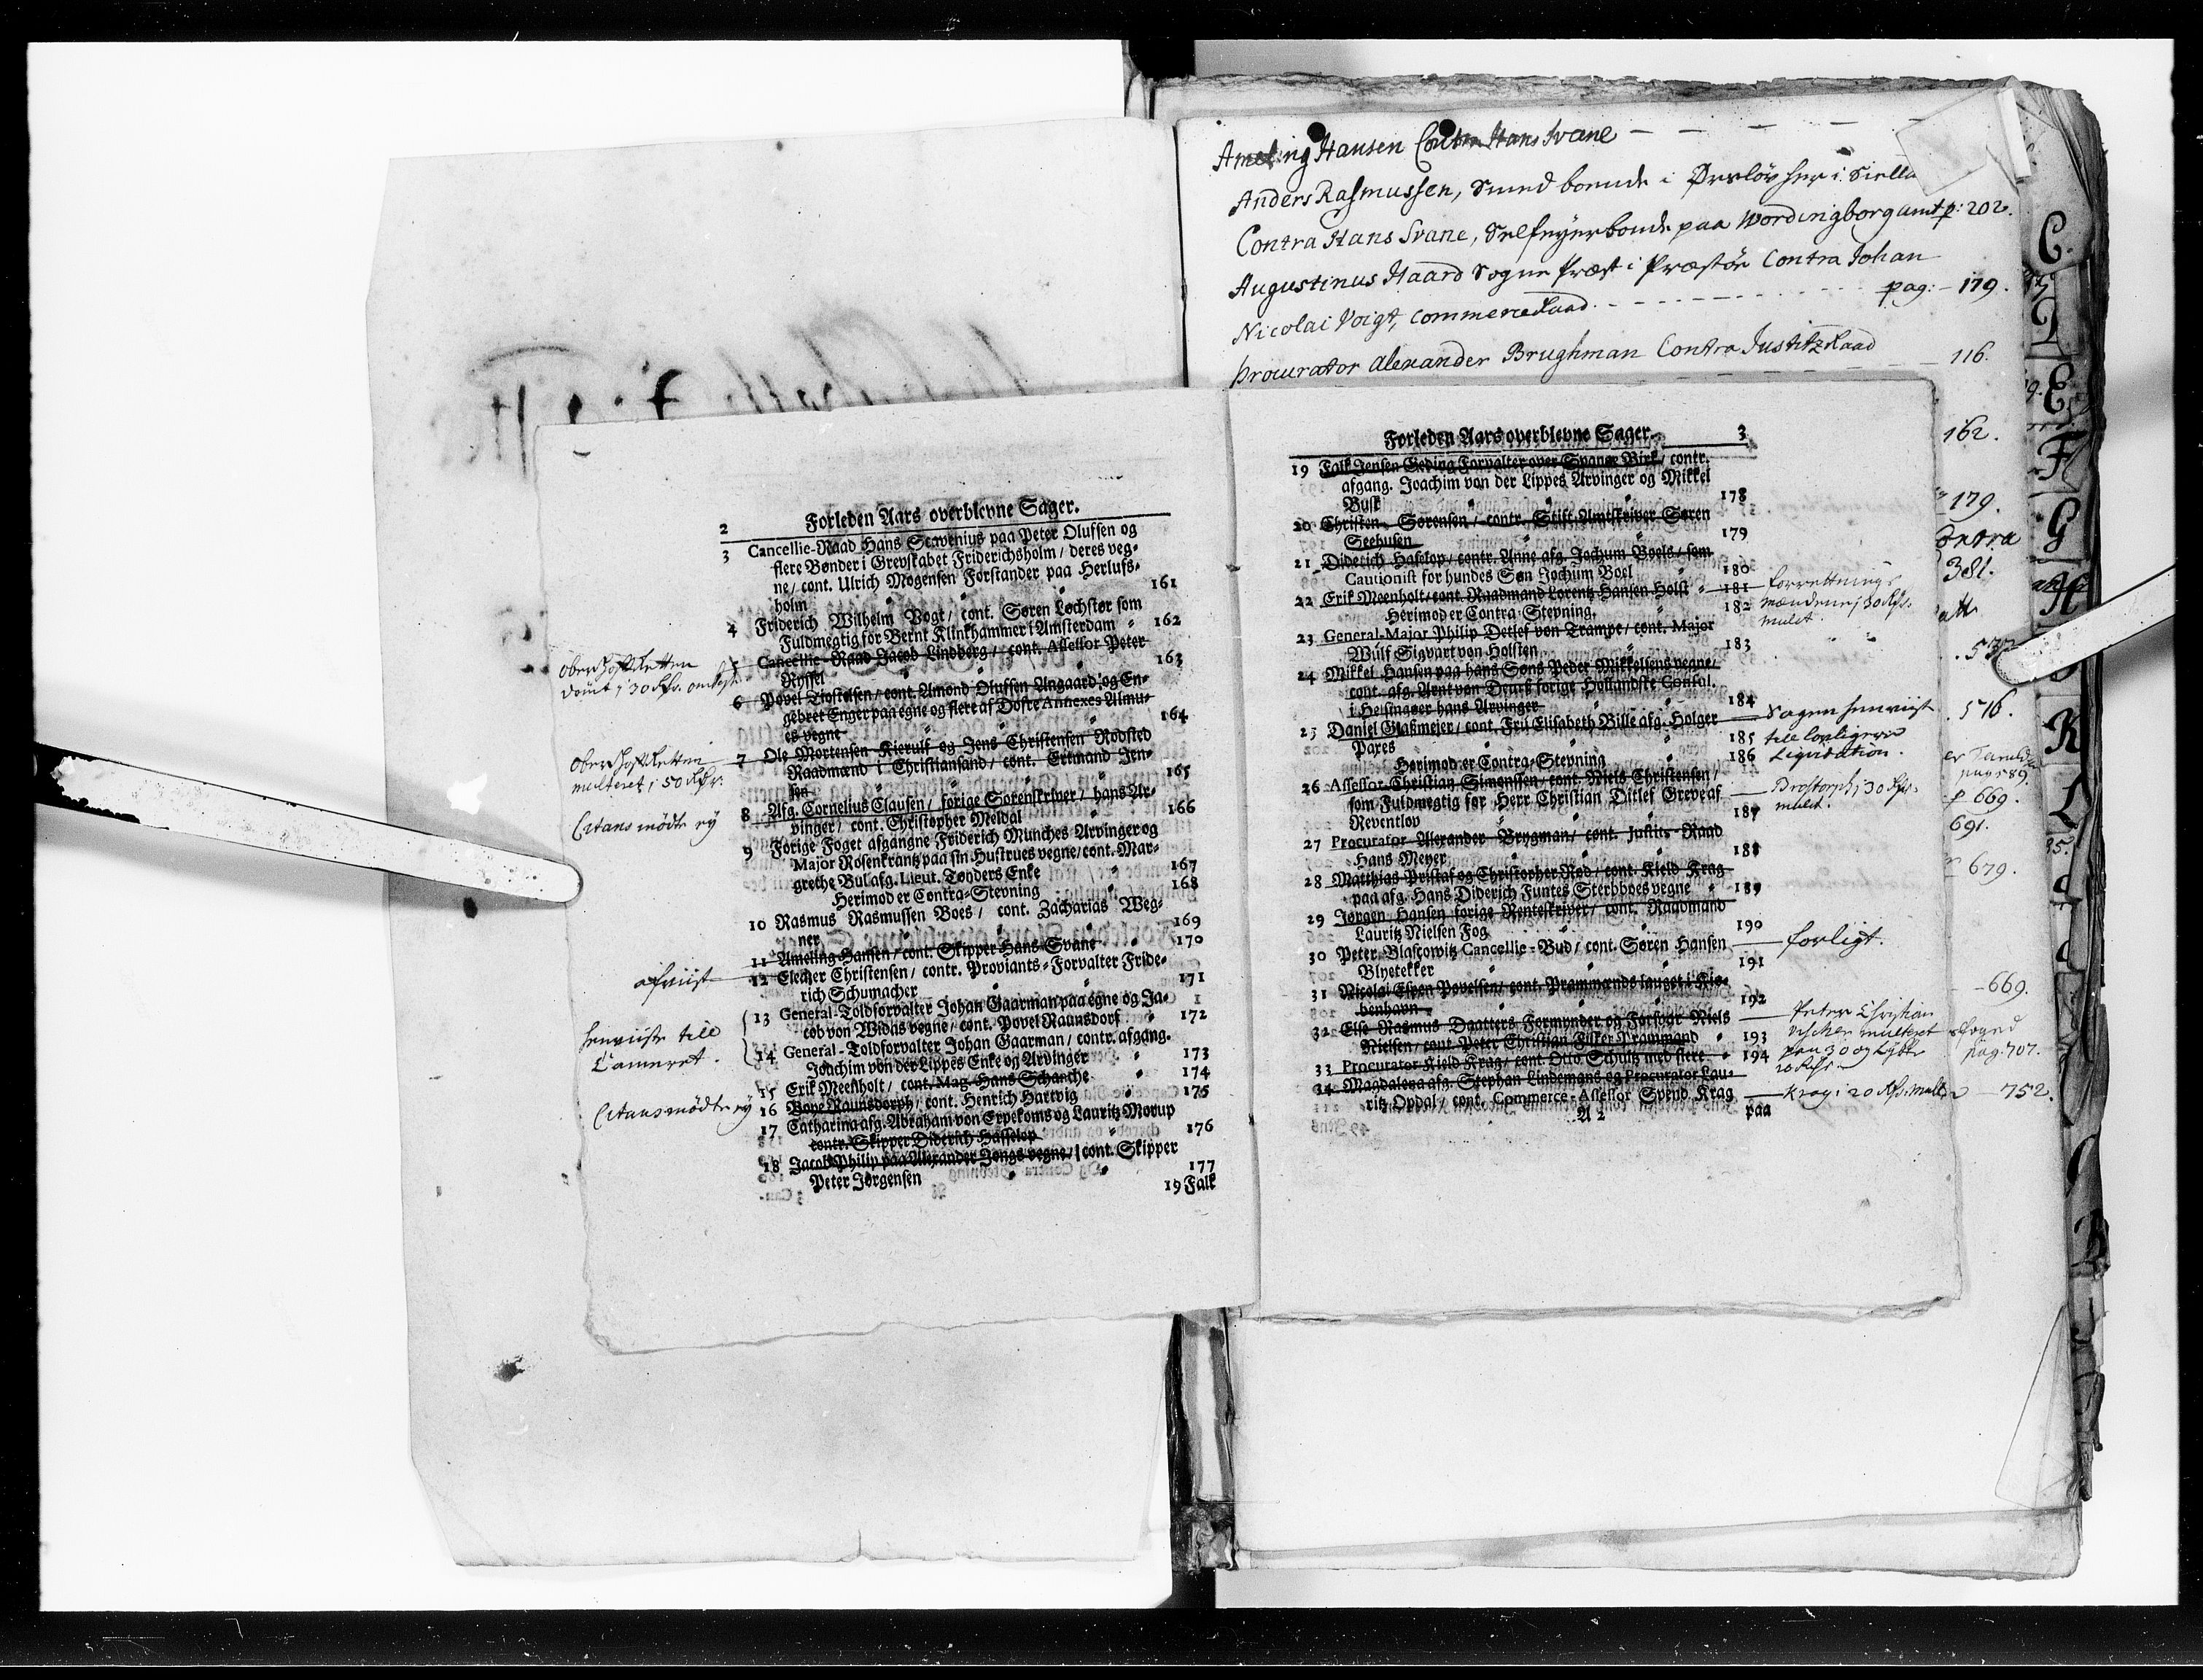 Ameling Hansen Contra Hans Svane
Anders Rasmussen, Smed boende i Ørsløv her i Siella
Contra Hans Svane, Selfeyerbonde paa Wordingborg amt p: 202.
Augustinus Haard Sogne Præst i Præstøe Contra Johan
Nicolai Voigt, Commerce Raad pag: 179.
Procurator Alexander Brughman Contra Justitz Raad
116.
162.
179.
Contra
381.
576.
p 669.
691.
679.
669.
pag: 707.
752.
C.
E
F
G
H
K
L
2 Forleden Aars overblevne Sager.
3 Cancellie-Raad Hans Scavenius paa Peter Olufsen og
flere Bønder i Grevskabet Friderichsholm / deres veg-
ne / cont. Ulrich Mogensen Forstander paa Herlufs-
holm 161
4 Friderich Wilhelm Vogt / cont. Søren Lochstør som
Fuldmegtig for Bernt Klinkhammer i Amsterdam 162
5 Cancellie-Raad Jacob Lindberg / cont. Assessor Peter
Ryssel 163
6 Povel Tiostelsen / cont. Amond Oluffen Angaard og En-
gebret Enger paa egne og flere af Dofre Annexes Almu-
es vegne 164
7 Ole Mortensen Kierulf og Jens Christensen Rodsted
Raadmænd i Christiansand / cont. Ertmand Jen-
sen 165
8 Afg. Cornelius Clausen / forige Sorenskriver / hans Ar-
vinger / cont. Christopher Meldal 166
9 Forige Foget afgangne Friderich Munches Arvinger og
Major Rosenkrantz paa sin Hustrues vegne / cont. Mar-
grethe Bul afg. Lieut. Tonders Enke 167
Herimod er Contra-Stevning 168
10 Rasmus Rasmussen Boes / cont. Zacharias Weg-
ner 169
11 Ameling Hansen / cont. Skipper Hans Svane 170
12 Elecher Christensen / contr. Proviants-Forvalter Fride-
rich Schumacher 171
13 General-Toldforvalter Johan Gaarman paa egne og Ja-
cob von Widas vegne / cont. Povel Raunsdorf 172
14 General-Toldforvalter Johan Gaarman / contr. afgang.
Joachim von der Lippes Enke og Arvinger 173
15 Erik Meenholt / cont. Mag. Hans Schanche 174
16 Vope Raunsdorph / cont. Henrich Hartvig 175
17 Catharina afg. Abraham von Erpekoms og Lauritz Morup
contr. Skipper Diderich Hasselop 176
18 Jacob Philip paa Alexander Jongs vegne / cont. Skipper
Peter Jørgensen 177
19 Falk
Ober Hoff Retten
dømt i 30 Rdr.
Ober Hoff Retten
multeret i 50 Rdr.
Citans mødte ey
afviist
henviiste till
Cameret.
Citans mødte ey
Forleden Aars overblevne Sager. 3
19 Falk Jensen Geding Forvalter over Svanøe Birk / contr.
afgang. Joachim von der Lippes Arvinger og Mikkel
Busk 178
20 Christen Sørensen / contr. Stift Amtskriver Søren
Seehusen 179
21 Diderich Haselop / contr. Anne afg. Jochum Boels / som
Cautionist for hundes Søn Jochum Boel 180
22 Erik Meenholt / cont. Raadmand Lorentz Hansen Holst 181
Herimod er Contra-Stevning. 182
23 General-Major Philip Detlef von Trampe / cont. Major
Wulf Sigvart von Holsten 183
24 Mikkel Hansen paa hans Søns Peder Mikkelsens vegne /
cont. afg. Arnt von Deurs forige Hollandske Consul
i Helsingøer hans Arvinger 184
25 Daniel Glasmejer / cont. Fru Elisabeth Bille afg. Holger
Paxes 185
Herimod er Contra-Stevning 186
26 Assessor Christian Simonssen / cont. Niels Christensen /
som Fuldmegtig for Herr Christian Ditlef Greve af
Reventlov 187
27 Procurator Alexander Brygman / cont. Justits-Raad
Hans Meyer 188
28 Matthias Pristaf og Christopher Rød / cont. Kield Krag
paa afg. Hans Diderich Funtes Sterbboes vegne 189
29 Jørgen Hansen forige Renteskriver / cont. Raadmand
Lauritz Nielsen Fog 190
30 Peter Blascowitz Cancellie-Bud / cont. Søren Hansen
Blyetekker 191
31 Nicolai Espen Povelsen / cont. Prammænds lauget i Kio-
benhavn 192
32 Else Rasmus Daatters Formynder og Farfoer Niels
Nielsen / cont. Peter Christian Fisker Prammand 193
33 Procurator Kield Krag / cont. Otto Schultz med flere 194
34 Magdalena afg. Stephan Lindemans og Procurator Lau-
ritz Opdal / cont. Commerce-Assessor Svend Krag
A 2 paa
forrettnings
mændene i 30 Rdr.
mulct.
Sagen henviist
till lovligere
Liquidation.
30 Rdr.
mulct.
forligt.
Peter Christian
Fischer multeret
20 Rdr.
Krag i 20 Rdr. mulct